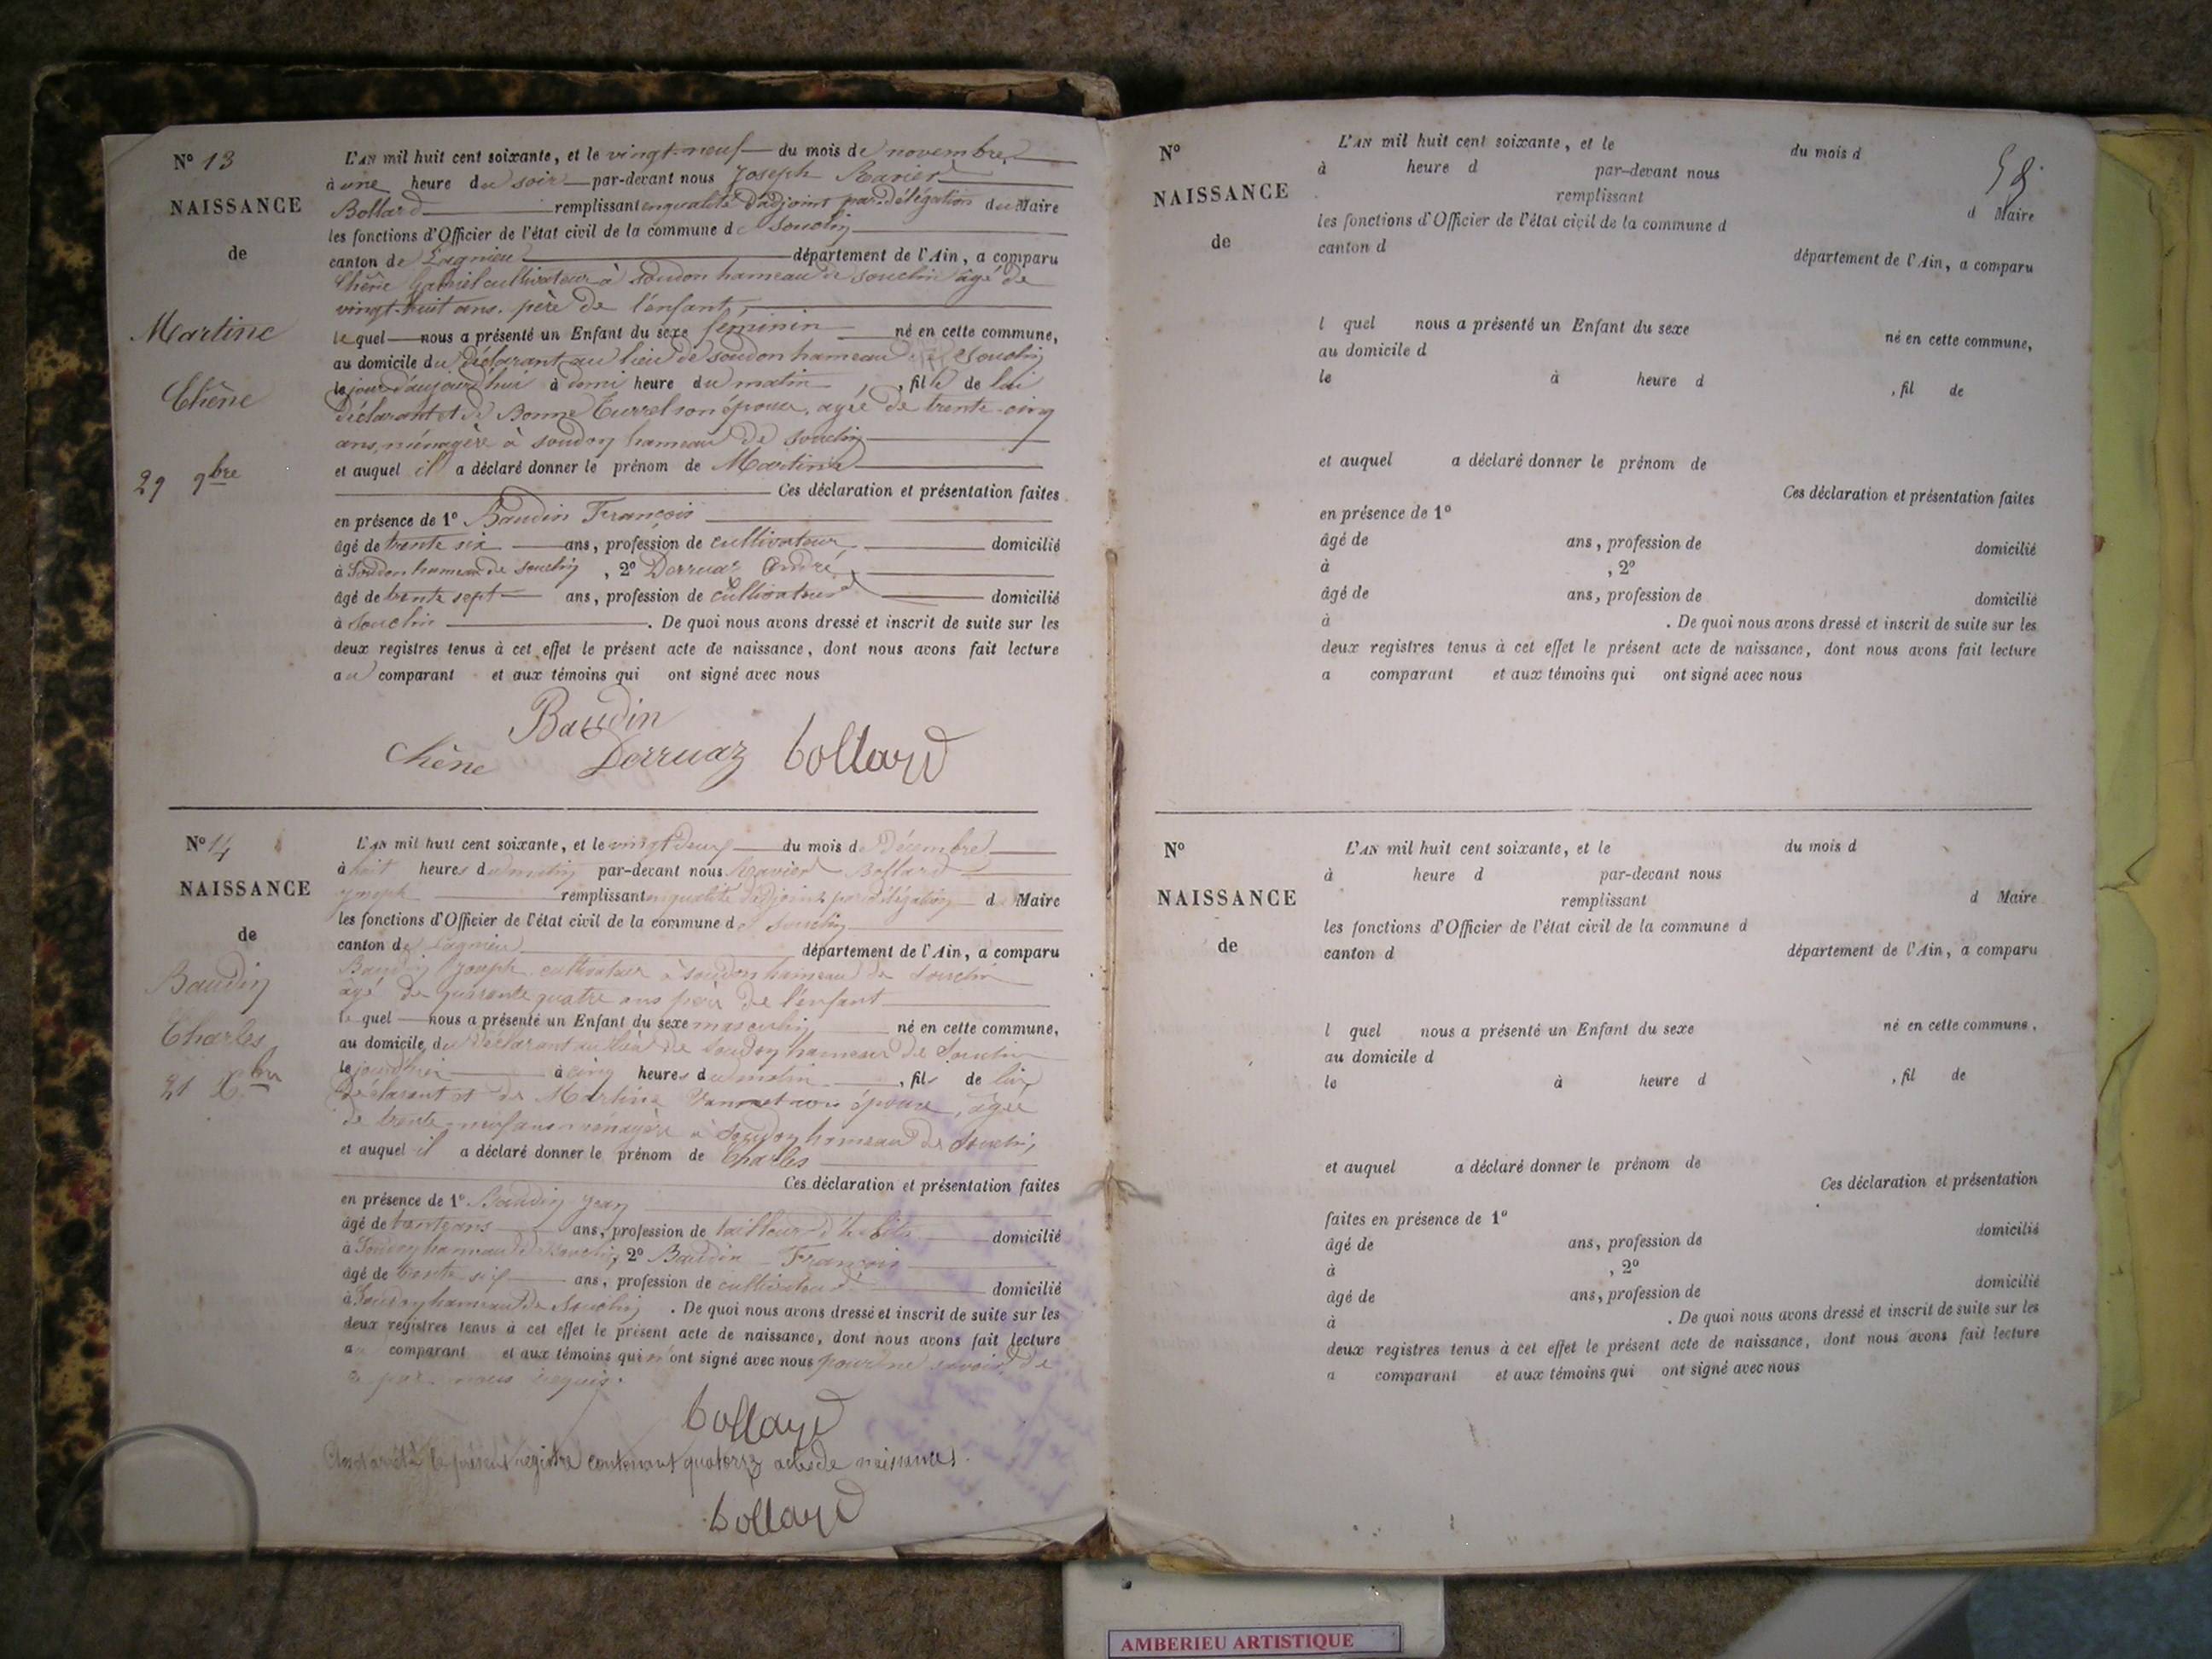 N° 13
NAISSANCE
de
Martine
Chêne
29 9bre
L'AN mil huit cent soixante, et le vingt-neuf du mois de novembre
à une heure du soir par-devant nous Joseph Xavier
Bollard remplissant en qualité d'adjoint par délégation du Maire
les fonctions d'Officier de l'état civil de la commune de Souclin
canton de Lagnieu département de l'Ain, a comparu
Chêne cultivateur à Soudon hameau de Souclin âgé de
vingt-huit ans, père de l'enfant,
lequel nous a présenté un Enfant du sexe feminin né en cette commune,
au domicile du Déclarant au lieu de Soudon hameau de Souclin
le jour d'aujourd'hui à demi heure du matin, fille de lui
Déclarant et de Bonne Turrel son épouse, agée de trente-cinq
ans, ménagère à Soudon hameau de Souclin
et auquel il a déclaré donner le prénom de Martine
Ces déclaration et présentation faites
en présence de 1° Baudin François
âgé de trente six ans, profession de cultivateur domicilié
à Soudon hameau de Souclin, 2° Derruaz André
âgé de trente sept ans, profession de cultivateur domicilié
à Souclin. De quoi nous avons dressé et inscrit de suite sur les
deux registres tenus à cet effet le présent acte de naissance, dont nous avons fait lecture
au comparant et aux témoins qui ont signé avec nous
Baudin
Chêne Derruaz bollard
N° 14
NAISSANCE
de
Baudin
Charles
21 Xbre
L'AN mil huit cent soixante, et le vingt deux du mois de Décembre
à huit heures du matin par-devant nous Xavier Bollard
joseph remplissant en qualité d'adjoint par délégation d Maire
les fonctions d'Officier de l'état civil de la commune de Souclin
canton de Lagnieu département de l'Ain, a comparu
Baudin Joseph cultivateur à Soudon hameau de Souclin
agé de quarante quatre ans père de l'enfant
lequel nous a présenté un Enfant du sexe masculin né en cette commune,
au domicile du Déclarant au lieu de Soudon hameau de Souclin
le jour d'hier à cinq heures du matin, fils de lui
Déclarant et de Martine son épouse, âgée
de trente-neuf ans ménagère à Soudon hameau de Souclin,
et auquel il a déclaré donner le prénom de Charles
Ces déclaration et présentation faites
en présence de 1° Baudin Jean
âgé de trente ans ans, profession de tailleur d'habits domicilié
à Soudon hameau de Souclin, 2° Baudin François
âgé de trente six ans, profession de cultivateur domicilié
à Soudon hameau de Souclin. De quoi nous avons dressé et inscrit de suite sur les
deux registres tenus à cet effet le présent acte de naissance, dont nous avons fait lecture
a comparant et aux témoins qui n'ont signé avec nous pour ne savoir de
ce par nous requis.
bollard
Clos et arrêté le présent registre contenant quatorze actes de naissances.
bollard
58.
N°
NAISSANCE
de
L'AN mil huit cent soixante, et le du mois d
à heure d par-devant nous
remplissant d Maire
les fonctions d'Officier de l'état civil de la commune d
canton d département de l'Ain, a comparu
l quel nous a présenté un Enfant du sexe né en cette commune,
au domicile d
le à heure d , fil de
et auquel a déclaré donner le prénom de
Ces déclaration et présentation faites
en présence de 1°
âgé de ans, profession de domicilié
à , 2°
âgé de ans, profession de domicilié
à . De quoi nous avons dressé et inscrit de suite sur les
deux registres tenus à cet effet le présent acte de naissance, dont nous avons fait lecture
a comparant et aux témoins qui ont signé avec nous
N°
NAISSANCE
de
L'AN mil huit cent soixante, et le du mois d
à heure d par-devant nous
remplissant d Maire
les fonctions d'Officier de l'état civil de la commune d
canton d département de l'Ain, a comparu
l quel nous a présenté un Enfant du sexe né en cette commune,
au domicile d
le à heure d , fil de
et auquel a déclaré donner le prénom de
Ces déclaration et présentation
faites en présence de 1°
âgé de ans, profession de domicilié
à , 2°
âgé de ans, profession de domicilié
à . De quoi nous avons dressé et inscrit de suite sur les
deux registres tenus à cet effet le présent acte de naissance, dont nous avons fait lecture
a comparant et aux témoins qui ont signé avec nous
AMBERIEU ARTISTIQUE